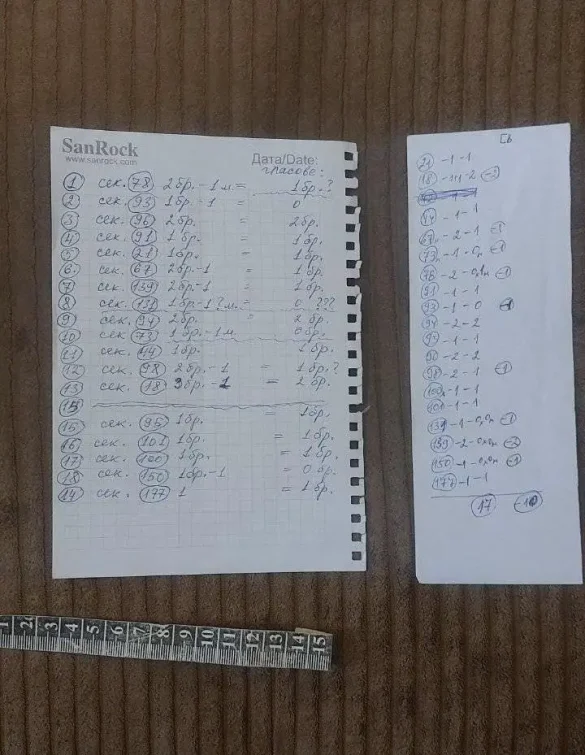 SanRock
www.sanrock.com
Дата/Date:
гласове:
1 сек. 78 2бр. - 1м. = 1бр.?
2 сек. 93 1бр. - 1 = 0
3 сек. 96 2бр. = 2бр.
4 сек. 91 1бр. = 1бр.
5 сек. 21 1бр. = 1бр.
6 сек. 67 2бр. - 1 = 1бр.
7 сек. 139 2бр. - 1 = 1бр.
8 сек. 131 1бр - 1?м. = 0 ???
9 сек. 94 2бр. = 2 бр.
10 сек. 73 1бр. - 1м. 0бр.
11 сек. 1бр. 1бр.
12 сек. 98 2бр. - 1 = 1бр.?
13 сек. 18 3бр - 1 = 2 бр.
15
15 сек. 95 1бр. = 1бр.
16 сек. 101 1бр. = 1бр.
17 сек. 100 1бр. = 1бр.
18 сек. 150 1бр. - 1 = 0 бр.
сек. 177 1 = 1 бр.
21 - 1 - 1
18 - 2
- 1 - 1
67 - 2 - 1 -1
73 - 1 -1
78 - 2 -1
91 - 1 - 1
93 - 1 - 0
94 - 2 - 2
95 - 1 - 1
96 - 2 - 2
98 - 2 - 1 -1
100 - 1 - 1
101 - 1 - 1
131 - 1 -1
139 - 2
150 - 1 -1
177 - 1 - 1
17 -10
1 2 3 4 5 6 7 8 9 10 11 12 13 14 15